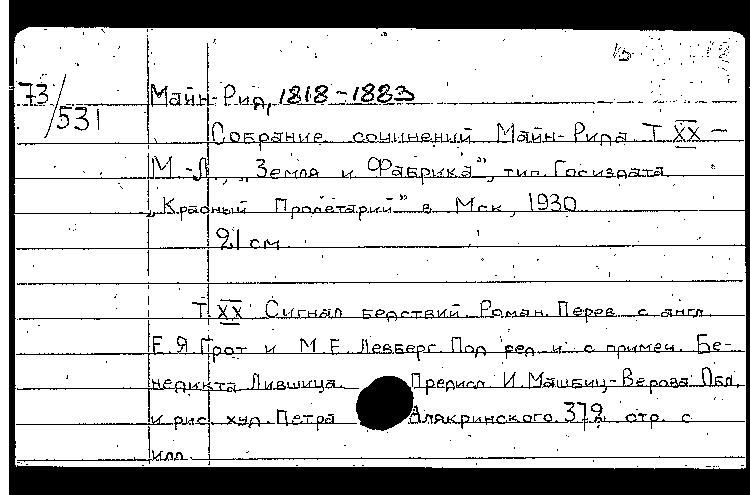 73/531
Майн-Рид, 1818-1883
Собрание сочинений Майн-Рида. Т. XX —
М.-Л., „Земля и Фабрика", тип. Госиздата
„Красный Пролетарий" в Мск, 1930
21 см
Т. XX Сигнал бедствий. Роман. Перев. с англ.
Е.Я. Грот и М.Е. Левберг. Под ред. и с примеч. Бе-
недикта Лившица. Предисл. И. Машбиц-Верова. Обл.
и рис. худ. Петра Алякринского. 372 стр. с
илл.